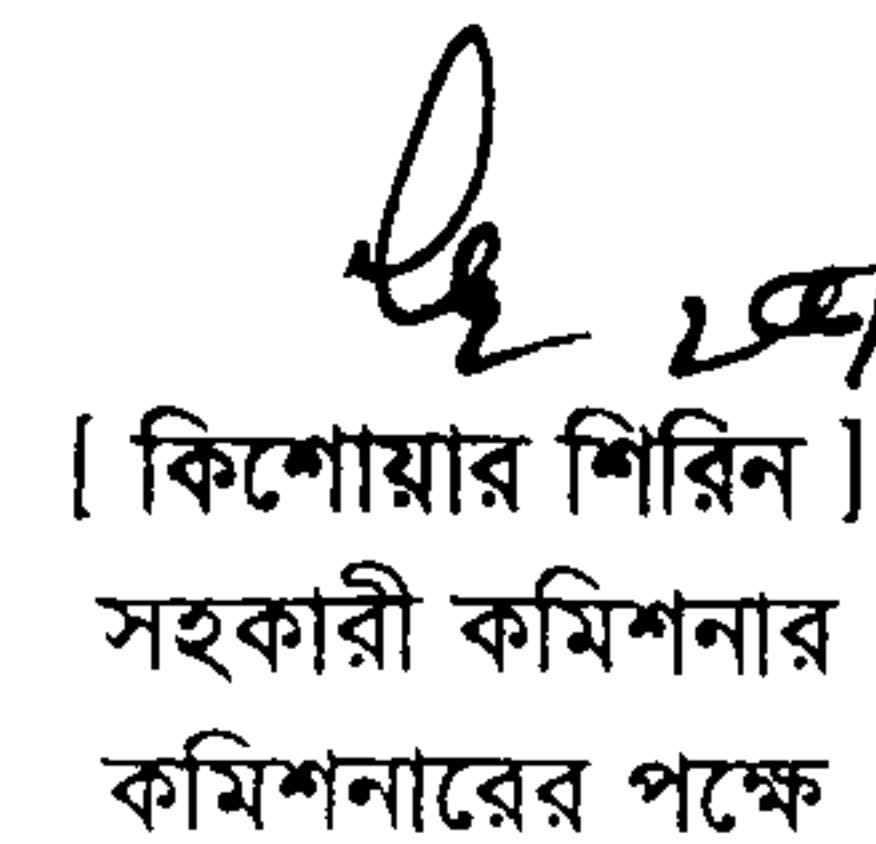 [ কিশোয়ার শিরিন ]
সহকারী কমিশনার
কমিশনারের পক্ষে